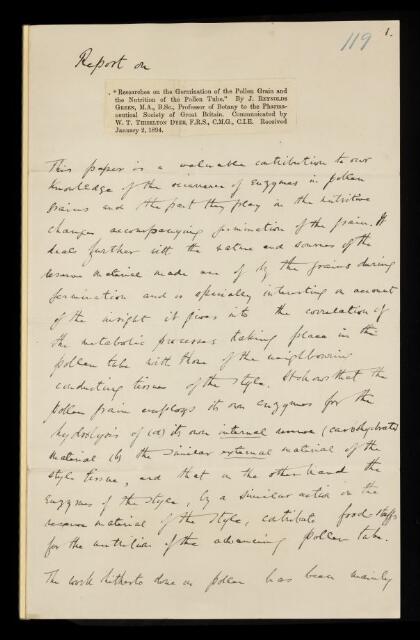 119
1.
Report on
"Researches on the Germination of the Pollen Grain and
the Nutrition of the Pollen Tube." By J. REYNOLDS
GREEN, M.A., B.Sc., Professor of Botany to the Pharma-
ceutical Society of Great Britain. Communicated by
W. T. THISELTON DYER, F.R.S., C.M.G., C.I.E. Received
January 2, 1894.
This paper is a valuable contribution to our
knowledge of the occurrence of enzymes in pollen
grains and the part they play in the nutritive
changes accompanying germination of the grain. It
deals further with the nature and sources of the
reserve material made use of by the grains during
germination and is specially interesting on account
of the insight it gives into the correlation of
the metabolic processes taking place in the
pollen tube with those of the neighbouring
conducting tissue of the style. It shows that the
pollen grain employs its own enzymes for the
hydrolysis of (a) its own internal reserve (carbohydrate)
material (b) the similar external material of the
style tissue, and that on the other hand the
enzymes of the style, by a similar action on the
reserve material of the style, contribute food-stuffs
for the nutrition of the advancing pollen tube.
The work hitherto done on pollen has been mainly